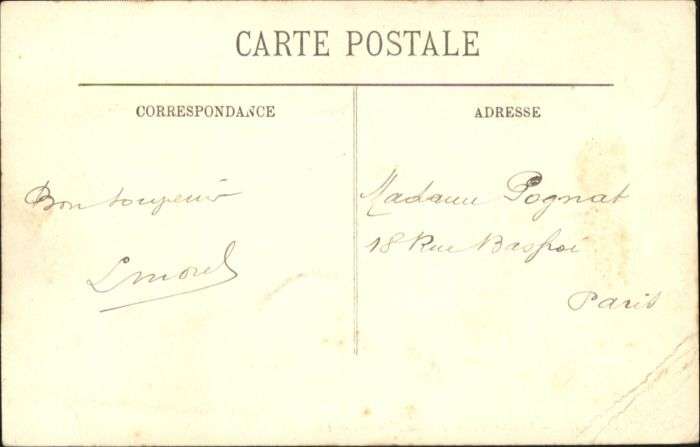 CARTE POSTALE
CORRESPONDANCE
ADRESSE
Bon
L Morel
Madame Pognat
18 Rue Basfroi
Paris